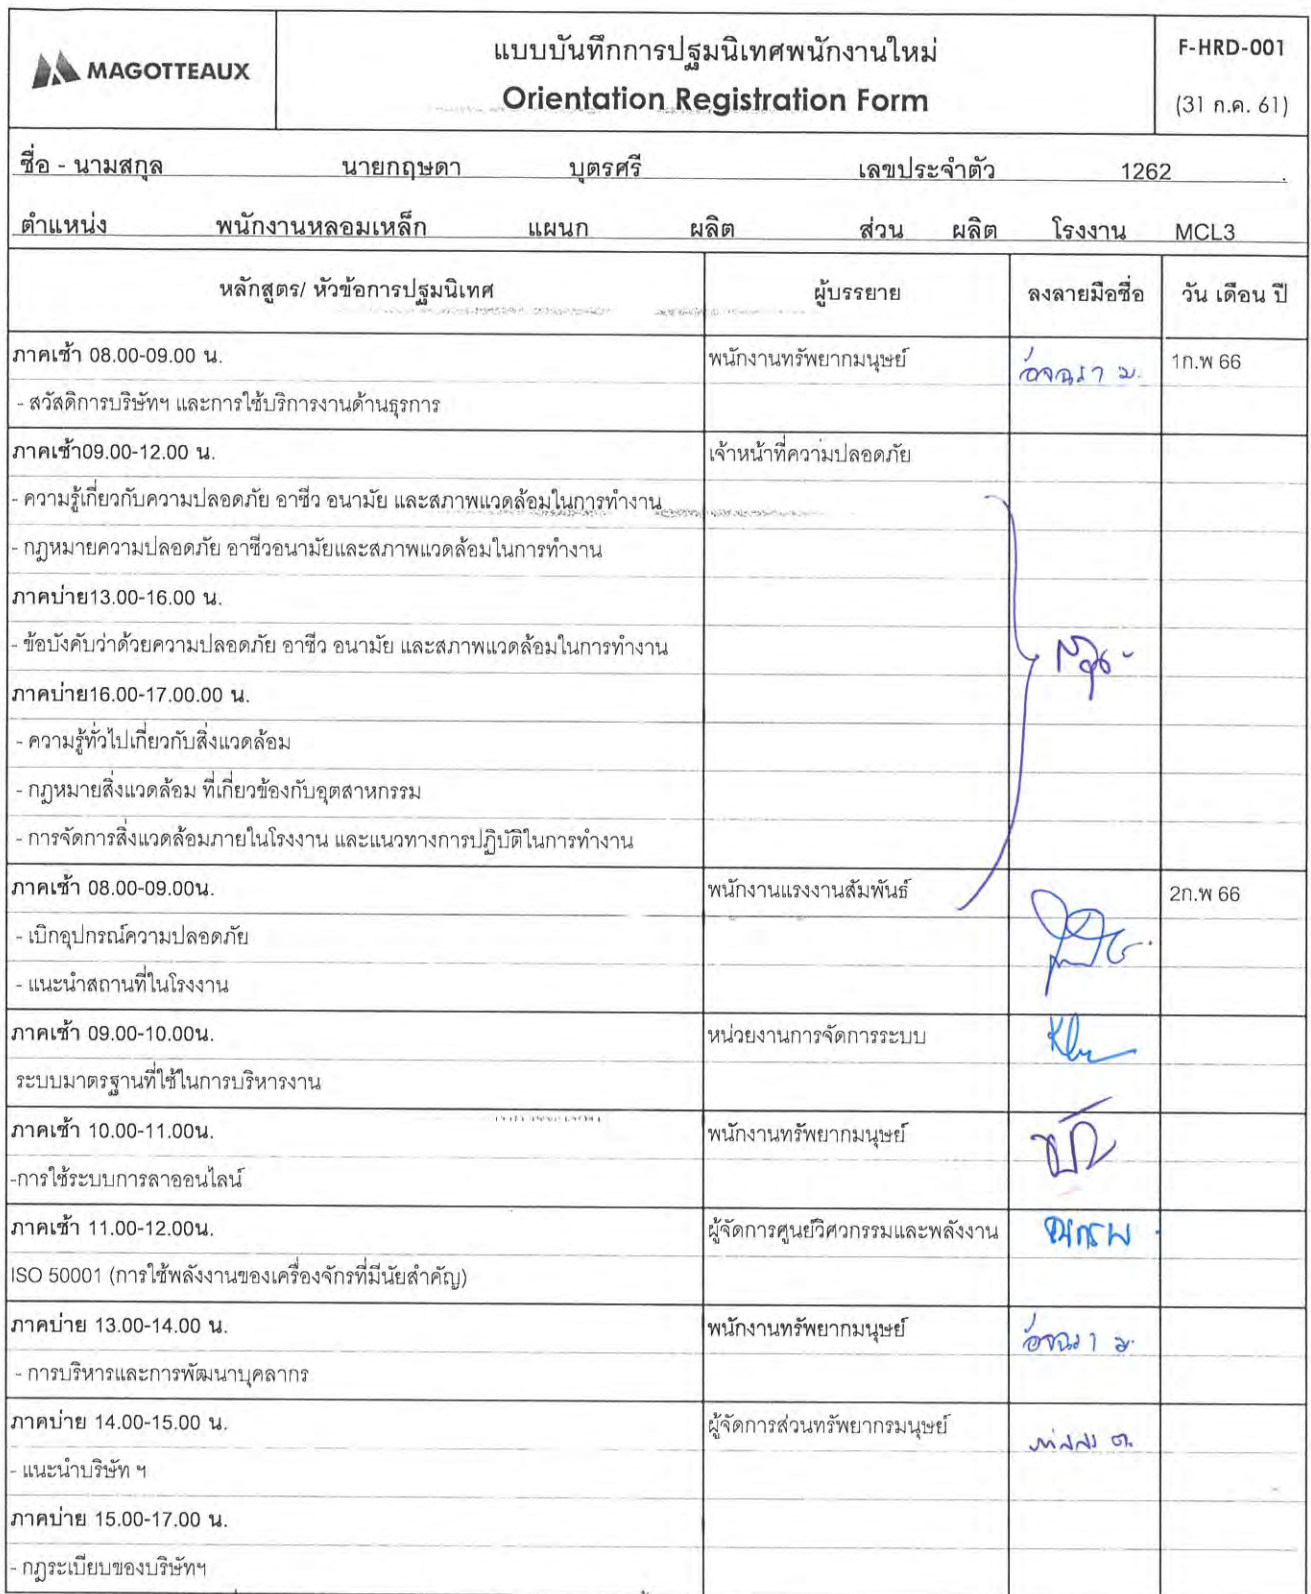 MAGOTTEAUX
แบบบันทึกการปฐมนิเทศพนักงานใหม่
Orientation Registration Form
F-HRD-001
(31 ก.ค. 61)
ชื่อ - นามสกุล นายกฤษดา บุตรศรี เลขประจำตัว 1262 .
ตำแหน่ง พนักงานหลอมเหล็ก แผนก ผลิต ส่วน ผลิต โรงงาน MCL3
หลักสูตร/ หัวข้อการปฐมนิเทศ ผู้บรรยาย ลงลายมือชื่อ วัน เดือน ปี
ภาคเช้า 08.00-09.00 น. พนักงานทรัพยากมนุษย์ อัจฉรา ม. 1ก.พ 66
- สวัสดิการบริษัทฯ และการใช้บริการงานด้านธุรการ
ภาคเช้า09.00-12.00 น. เจ้าหน้าที่ความปลอดภัย
- ความรู้เกี่ยวกับความปลอดภัย อาชีว อนามัย และสภาพแวดล้อมในการทำงาน
- กฎหมายความปลอดภัย อาชีวอนามัยและสภาพแวดล้อมในการทำงาน
ภาคบ่าย13.00-16.00 น.
- ข้อบังคับว่าด้วยความปลอดภัย อาชีว อนามัย และสภาพแวดล้อมในการทำงาน
ภาคบ่าย16.00-17.00.00 น.
- ความรู้ทั่วไปเกี่ยวกับสิ่งแวดล้อม
- กฎหมายสิ่งแวดล้อม ที่เกี่ยวข้องกับอุตสาหกรรม
- การจัดการสิ่งแวดล้อมภายในโรงงาน และแนวทางการปฏิบัติในการทำงาน
ภาคเช้า 08.00-09.00น. พนักงานแรงงานสัมพันธ์ 2ก.พ 66
- เบิกอุปกรณ์ความปลอดภัย
- แนะนำสถานที่ในโรงงาน
ภาคเช้า 09.00-10.00น. หน่วยงานการจัดการระบบ
ระบบมาตรฐานที่ใช้ในการบริหารงาน
ภาคเช้า 10.00-11.00น. พนักงานทรัพยากมนุษย์
-การใช้ระบบการลาออนไลน์
ภาคเช้า 11.00-12.00น. ผู้จัดการศูนย์วิศวกรรมและพลังงาน
ISO 50001 (การใช้พลังงานของเครื่องจักรที่มีนัยสำคัญ)
ภาคบ่าย 13.00-14.00 น. พนักงานทรัพยากมนุษย์ อัจฉรา ม.
- การบริหารและการพัฒนาบุคลากร
ภาคบ่าย 14.00-15.00 น. ผู้จัดการส่วนทรัพยากรมนุษย์
- แนะนำบริษัท ฯ
ภาคบ่าย 15.00-17.00 น.
- กฎระเบียบของบริษัทฯ